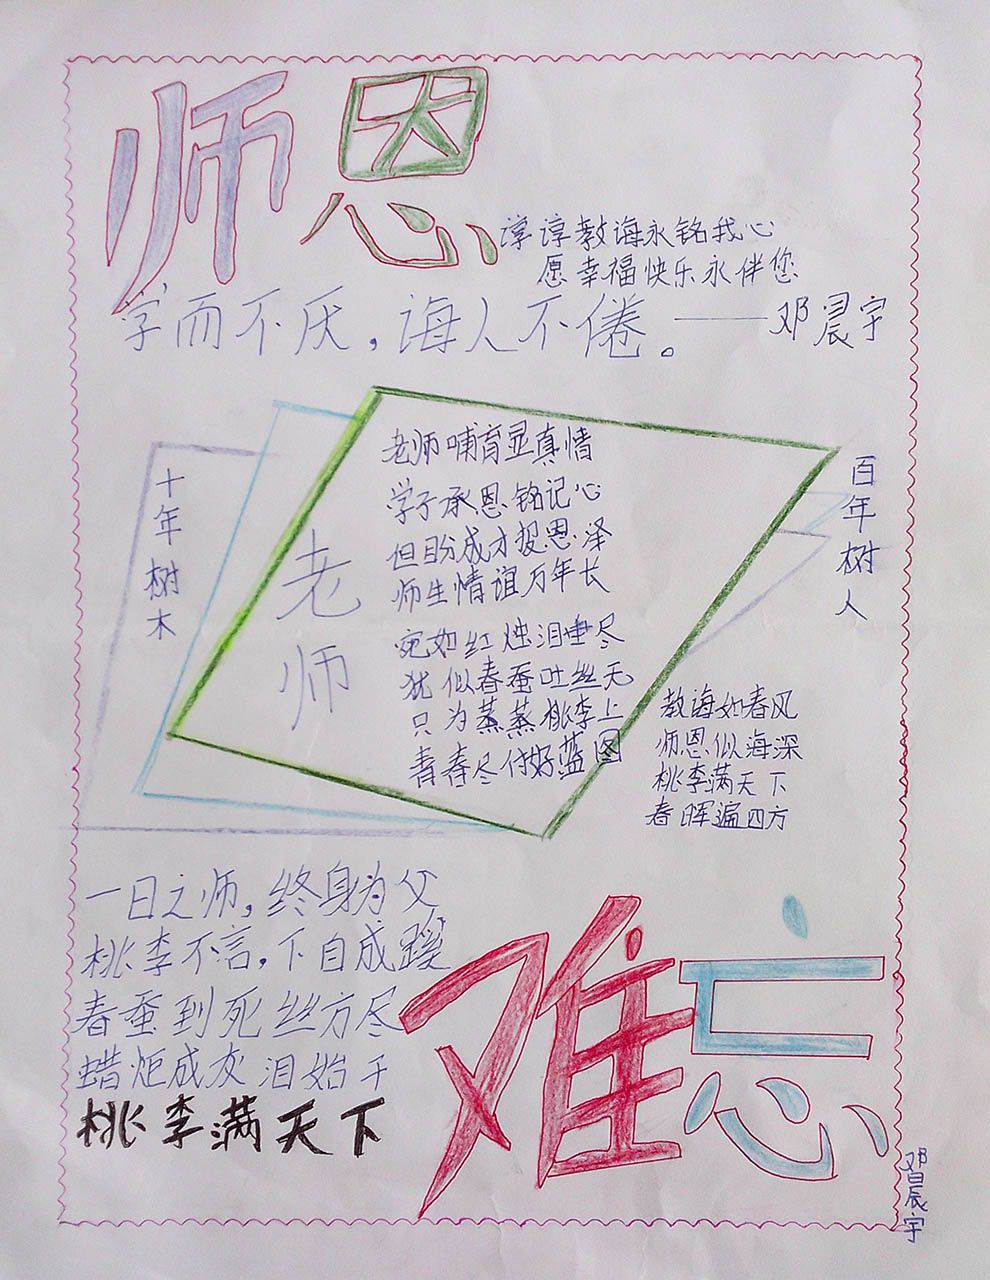 师恩
谆谆教诲永铭我心
愿幸福快乐永伴您
学而不厌，诲人不倦。——邓晨宇
十年树木
老师
老师哺育显真情
学子承恩铭记心
但盼成才报恩泽
师生情谊万年长
宛如红烛泪垂尽
犹似春蚕吐丝无
只为蒸蒸桃李上
青春尽付好蓝图
百年树人
教诲如春风
师恩似海深
桃李满天下
春晖遍四方
一日之师，终身为父
桃李不言，下自成蹊
春蚕到死丝方尽
蜡炬成灰泪始干
桃李满天下
难忘
邓晨宇